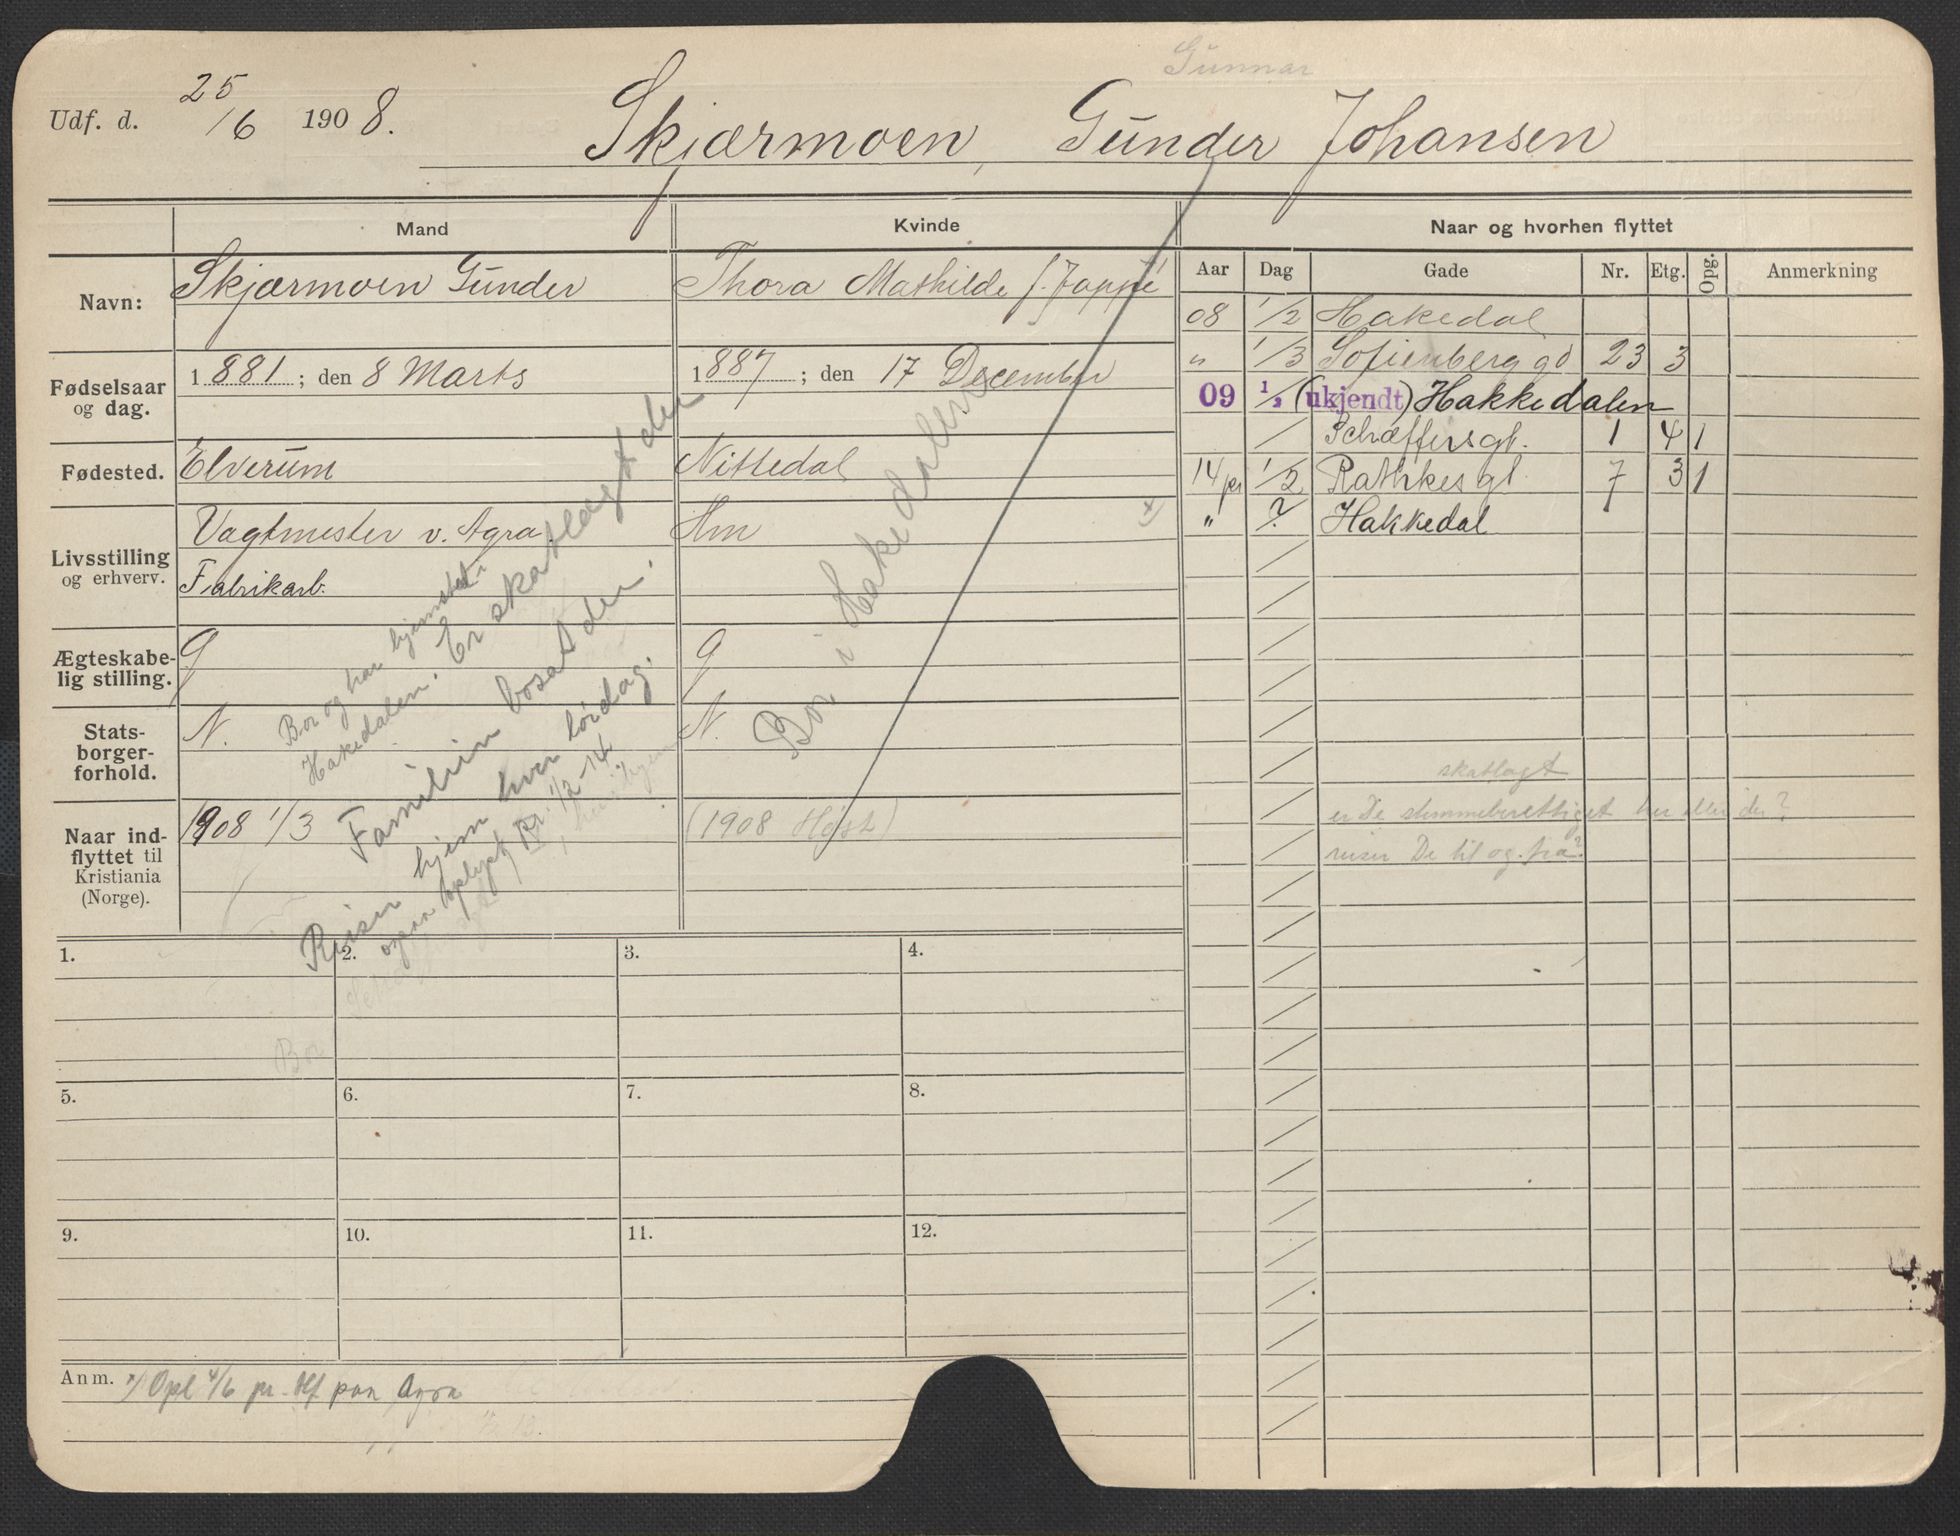 Gunnar
Udf. d. 25/6 1908. Skjærmoen, Gunder Johansen
Mand Kvinde Naar og hvorhen flyttet
Aar Dag Gade Nr. Etg. Opg. Anmerkning
Navn: Skjærmoen Gunder Thora Mathilde f. Jappé
Fødselsaar og dag. 1881; den 8 Marts 1887; den 17 December
Fødested. Elverum Nittedal
Livsstilling og erhverv. Vagtmester v. Agra. Hm
Fabrikarb.
Ægteskabe-
lig stilling. g g
Stats-
borger-
forhold. N. N.
Naar ind-
flyttet til
Kristiania
(Norge). 1908 1/3 (1908 Høst)
08 1/2 Hakedal
" 1/3 Sofienberg gd 23 3
09 1/2 (ukjendt) Hakkedalen
Schæffersgt. 1 4 1
14 pr 1/2 Rathkesgt. 7 3 1
" ? Hakkedal
skatlagt
er De stemmeberettiget her eller der?
reiser De til og fra?
Bor og har hjemsted i
Hakedalen. Er skatlagt der
Familien bosat der.
Reiser hjem hver lørdag.
opl. 1/2-14
Bor i Hakedalen
Bor
1. 2. 3. 4.
5. 6. 7. 8.
9. 10. 11. 12.
Anm. x) Opl 4/6 pr. tlf paa Agra